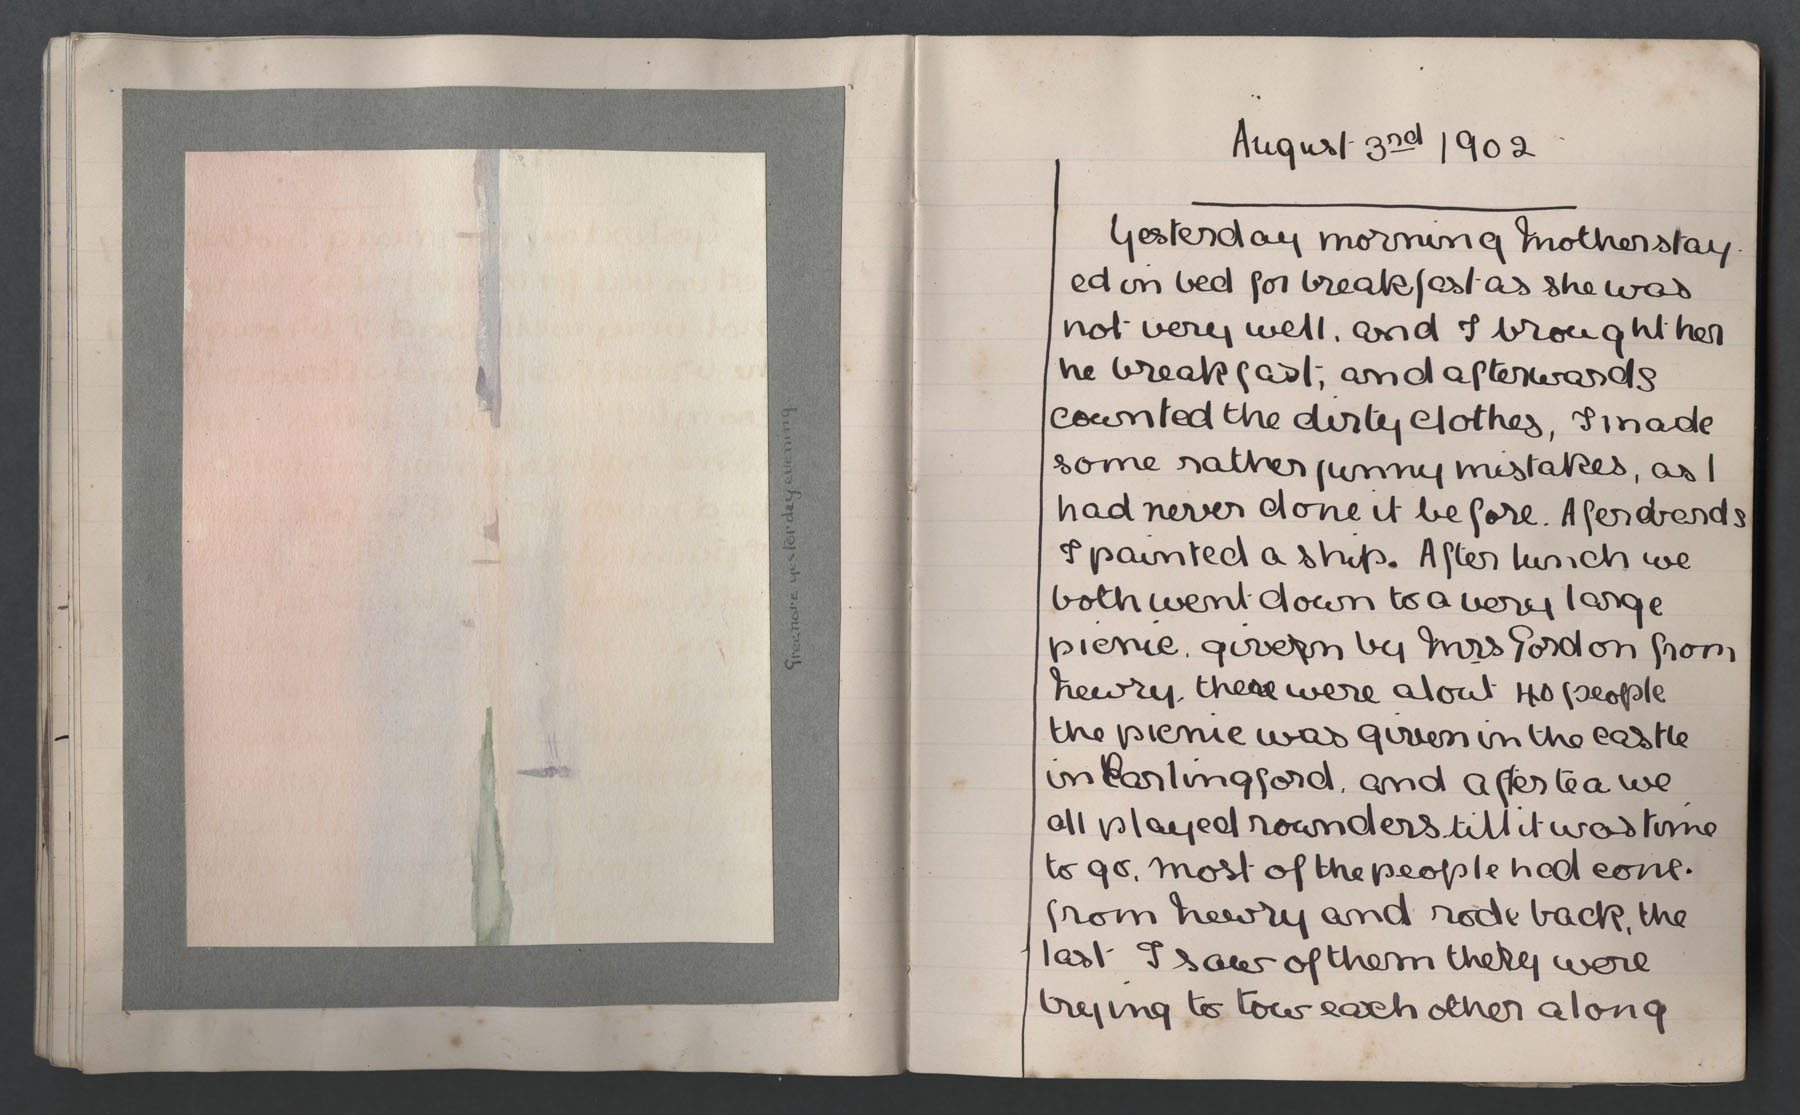 Greenore yesterday evening.
August 3rd 1902
Yesterday morning Mother stay-
ed in bed for breakfast as she was
not very well, and I brought her
he breakfast; and afterwards
counted the dirty clothes, I made
some rather funny mistakes, as I
had never done it before. Aferdverds
I painted a ship. After lunch we
both went down to a very large
picnic, given by Mrs Gordon from
Newry, there were about 40 people
the picnic was given in the castle
in Carlingford, and after tea we
all played rounders till it was time
to go, most of the people had come.
from Newry and rode back, the
last I saw of them they were
trying to tow each other along